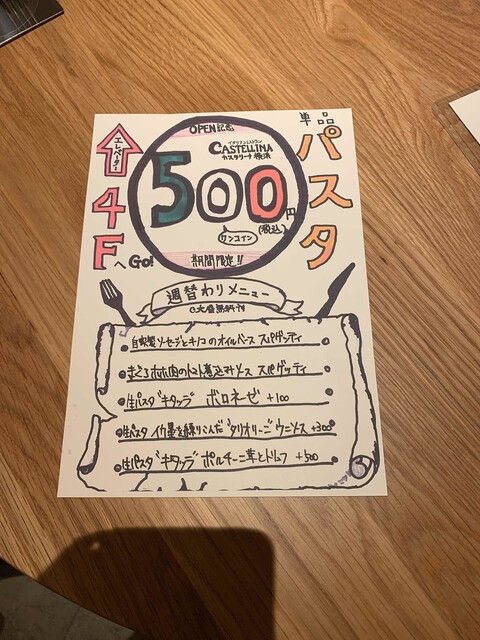 単品パスタ
OPEN記念
イタリアンレストラン
CASTELLINA
カステリーナ 横浜
500円
(税込)
ワンコイン
期間限定!!
エレベーター
4FへGO!
週替わりメニュー
大盛無料
自家製ソーセージとキノコのオイルソース スパゲッティ
まぐろホホ肉のトマト煮込みソース スパゲッティ
生パスタ"キタッラ" ボロネーゼ +100
生パスタ イカ墨を練りこんだ"タリオリーニ"ウニソース +300
生パスタ"キタッラ" ポルチーニ茸とトリュフ +500